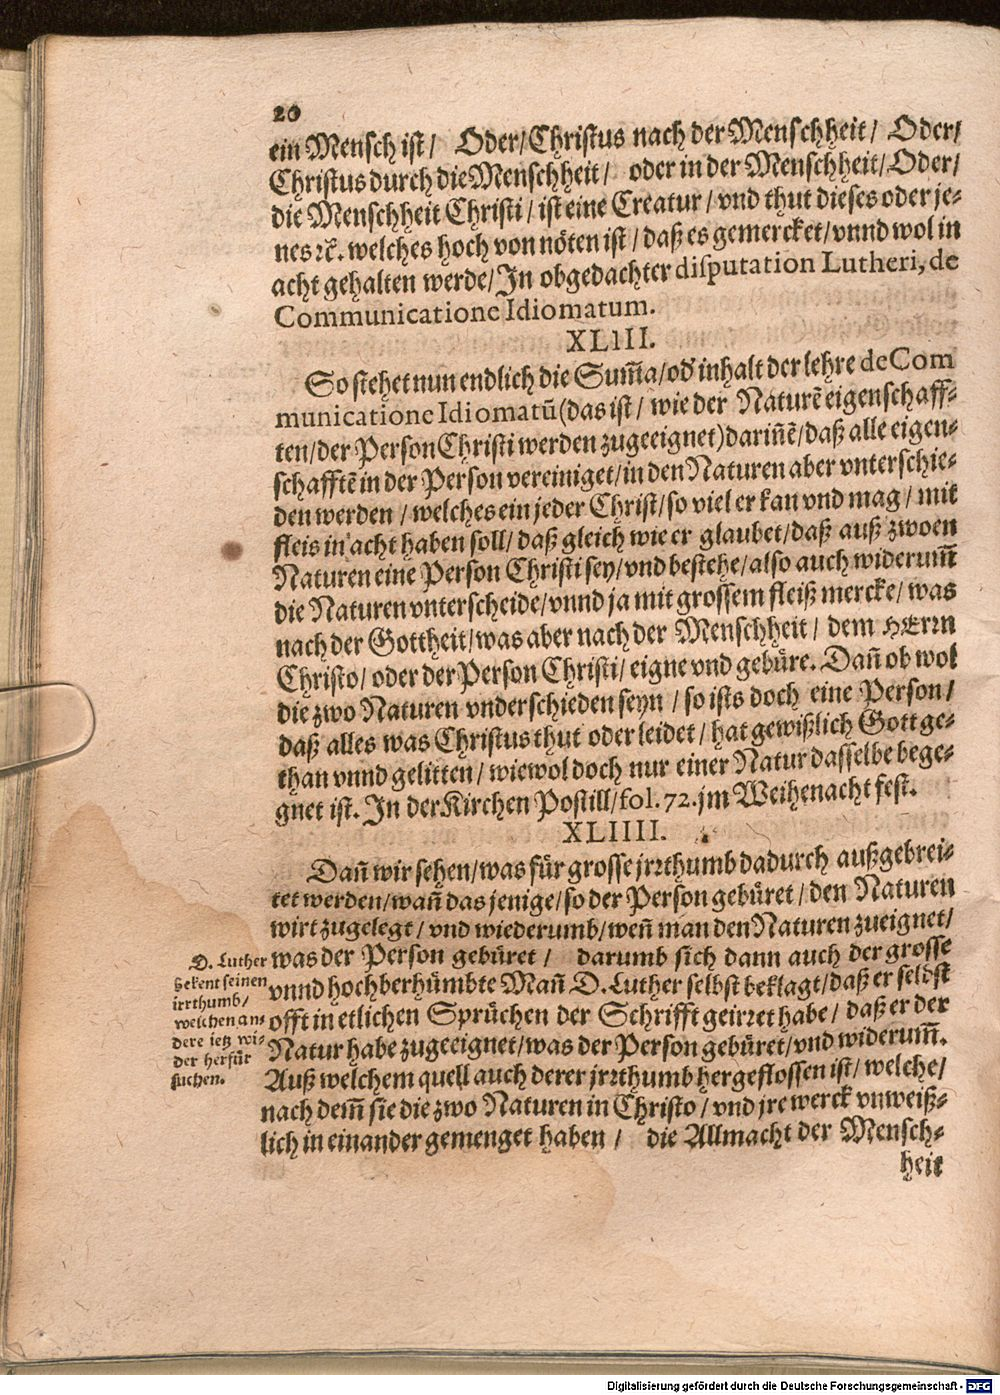 20
ein Mensch ist/ Oder/Christus nach der Menschheit/ Oder/
Christus durch die Menschheit/ oder in der Menschheit/Oder/
die Menschheit Christi/ist eine Creatur/vnd thut dieses oder je-
nes ꝛc. welches hoch von nöten ist/daß es gemercket/vnnd wol in
acht gehalten werde/In obgedachter disputation Lutheri, de
Communicatione Idiomatum.
XLIII.
So stehet nun endlich die Sum̃a/od' inhalt der lehre de Com
municatione Idiomatũ(das ist/ wie der Naturẽ eigenschaff-
ten/der Person Christi werden zugeeignet)dariñẽ/daß alle eigen-
schafftẽ in der Person vereiniget/in den Naturen aber vnterschie-
den werden/welches ein jeder Christ/so viel er kan vnd mag/ mit
fleis in acht haben soll/daß gleich wie er glaubet/daß auß zwoen
Naturen eine Person Christi sey/vnd bestehe/also auch widerum̃
die Naturen vnterscheide/vnnd ja mit grossem fleiß mercke/was
nach der Gottheit/was aber nach der Menschheit/ dem HErrn
Christo/oder der Person Christi/eigne vnd gebüre. Dañ ob wol
die zwo Naturen vnderschieden seyn/so ists doch eine Person/
daß alles was Christus thut oder leidet/hat gewißlich Gott ge-
than vnnd gelitten/wiewol doch nur einer Natur dasselbe bege-
gnet ist. In der Kirchen Postill/fol. 72. jm Weihenacht fest.
XLIIII.
Dañ wir sehen/was für grosse jrrthumb dadurch außgebrei-
tet werden/wañ das jenige/so der Person gebüret/den Naturen
wirt zugelegt/vnd wiederumb/weñ man den Naturen zueignet/
was der Person gebüret/ darumb sich dann auch der grosse
vnnd hochberhümbte Mañ D. Luther selbst beklagt/daß er selbst
offt in etlichen Sprüchen der Schrifft geirret habe/daß er der
Natur habe zugeeignet/was der Person gebüret/vnd widerum̃.
Auß welchem quell auch derer jrrthumb hergeflossen ist/welche/
nach dem̃ sie die zwo Naturen in Christo/vnd jre werck vnweiß-
lich in einander gemenget haben/ die Allmacht der Mensch-
heit
D. Luther
bekent seinen
irrthumb/
welchen an-
dere ietz wi-
der herfür
suchen.
Digitalisierung gefördert durch die Deutsche Forschungsgemeinschaft - DFG